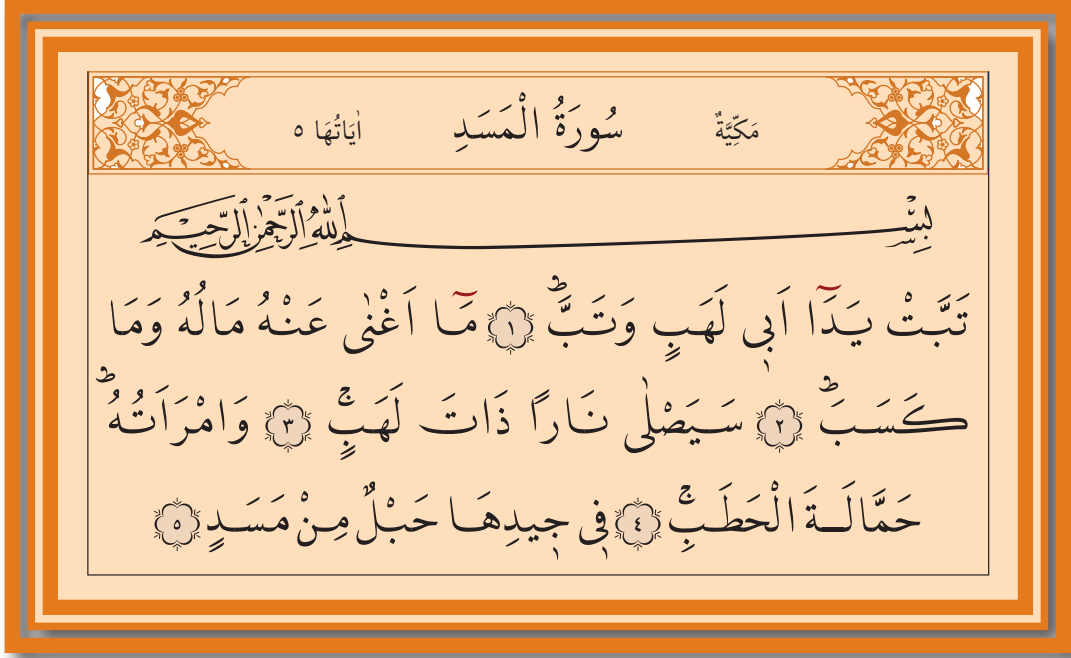 مَكِّيَّةٌ سُورَةُ الْمَسَدِ اٰيَاتُهَا ٥
بِسْمِ اللّٰهِ الرَّحْمٰنِ الرَّحِيمِ
تَبَّتْ يَدَٓا اَبٖي لَهَبٍ وَتَبَّۜ ﴿١﴾ مَٓا اَغْنٰى عَنْهُ مَالُهُ وَمَا
كَسَبَۜ ﴿٢﴾ سَيَصْلٰى نَارًا ذَاتَ لَهَبٍۚ ﴿٣﴾ وَامْرَاَتُهُۜ
حَمَّالَةَ الْحَطَبِۚ ﴿٤﴾ فٖي جٖيدِهَا حَبْلٌ مِنْ مَسَدٍ ﴿٥﴾